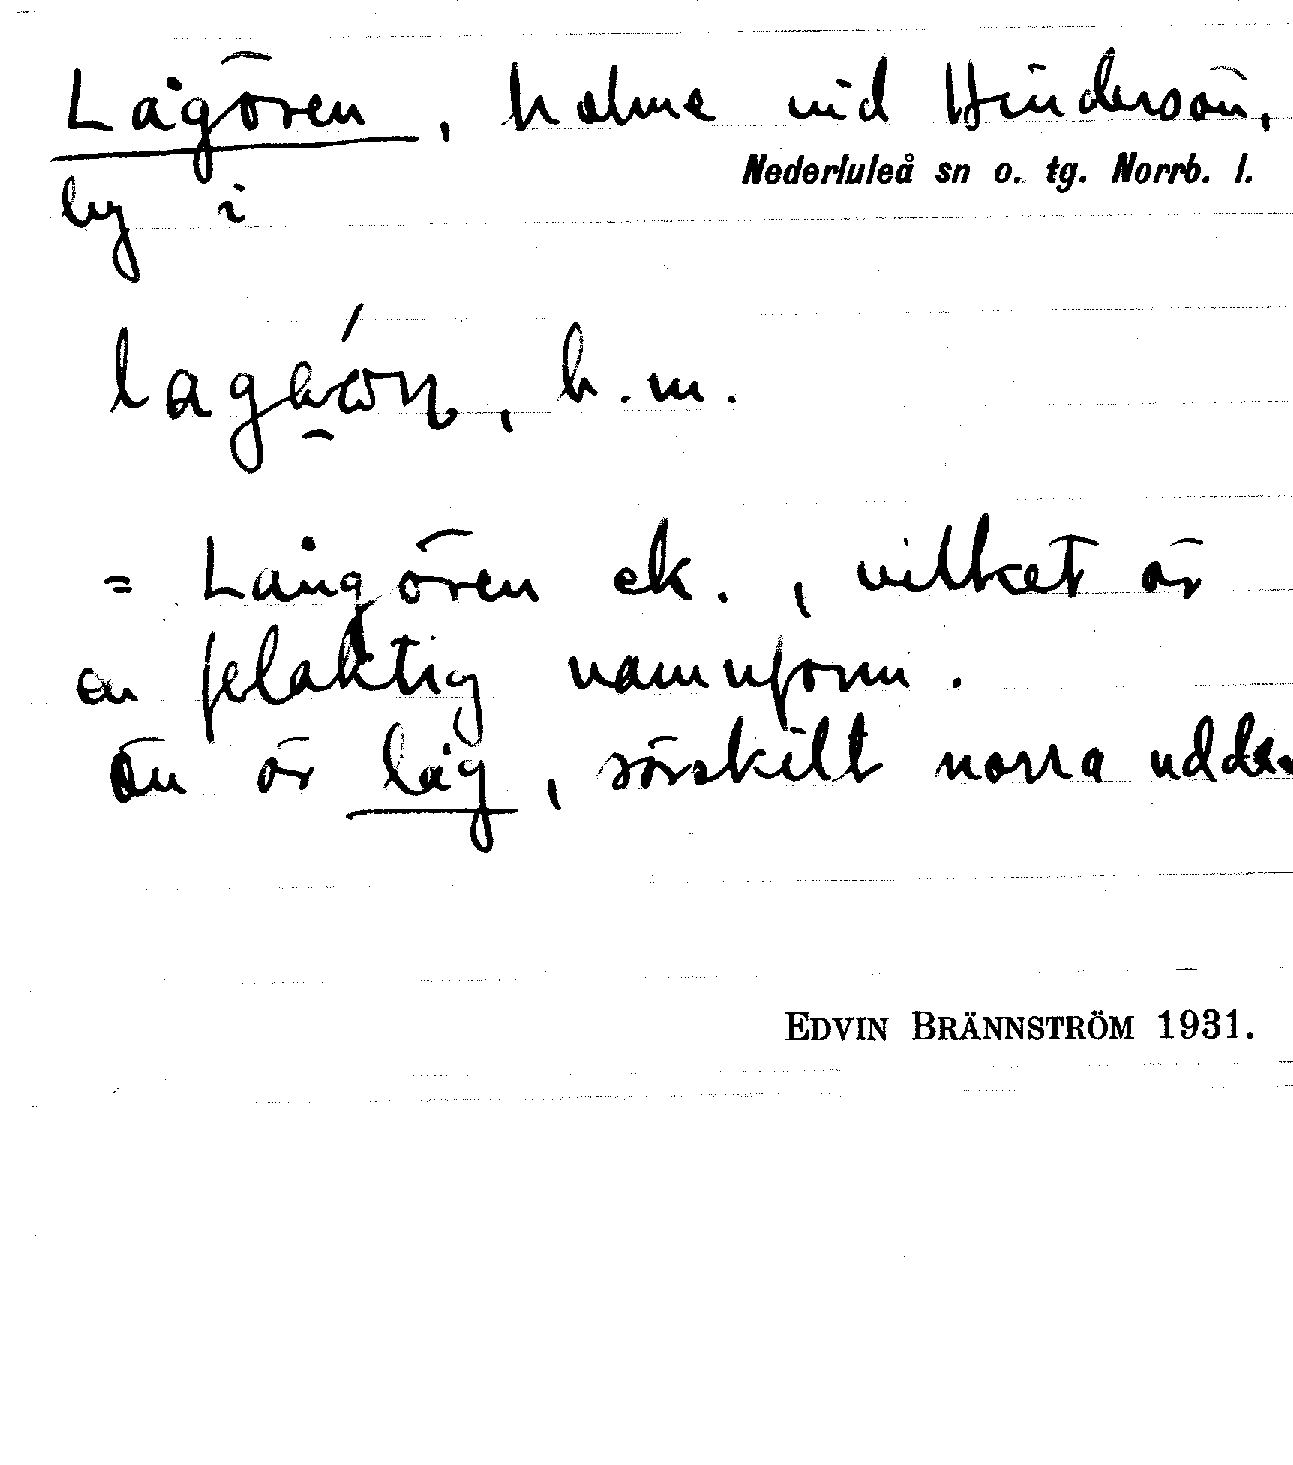 Lågören, holme vid Hindersön,
Nederluleå sn o. tg. Norrb. l.
by i
b.m.
= Långören ek., vilket är
en felaktig namnform.
Ön är låg, särskilt norra udden
EDVIN BRÄNNSTRÖM 1931.